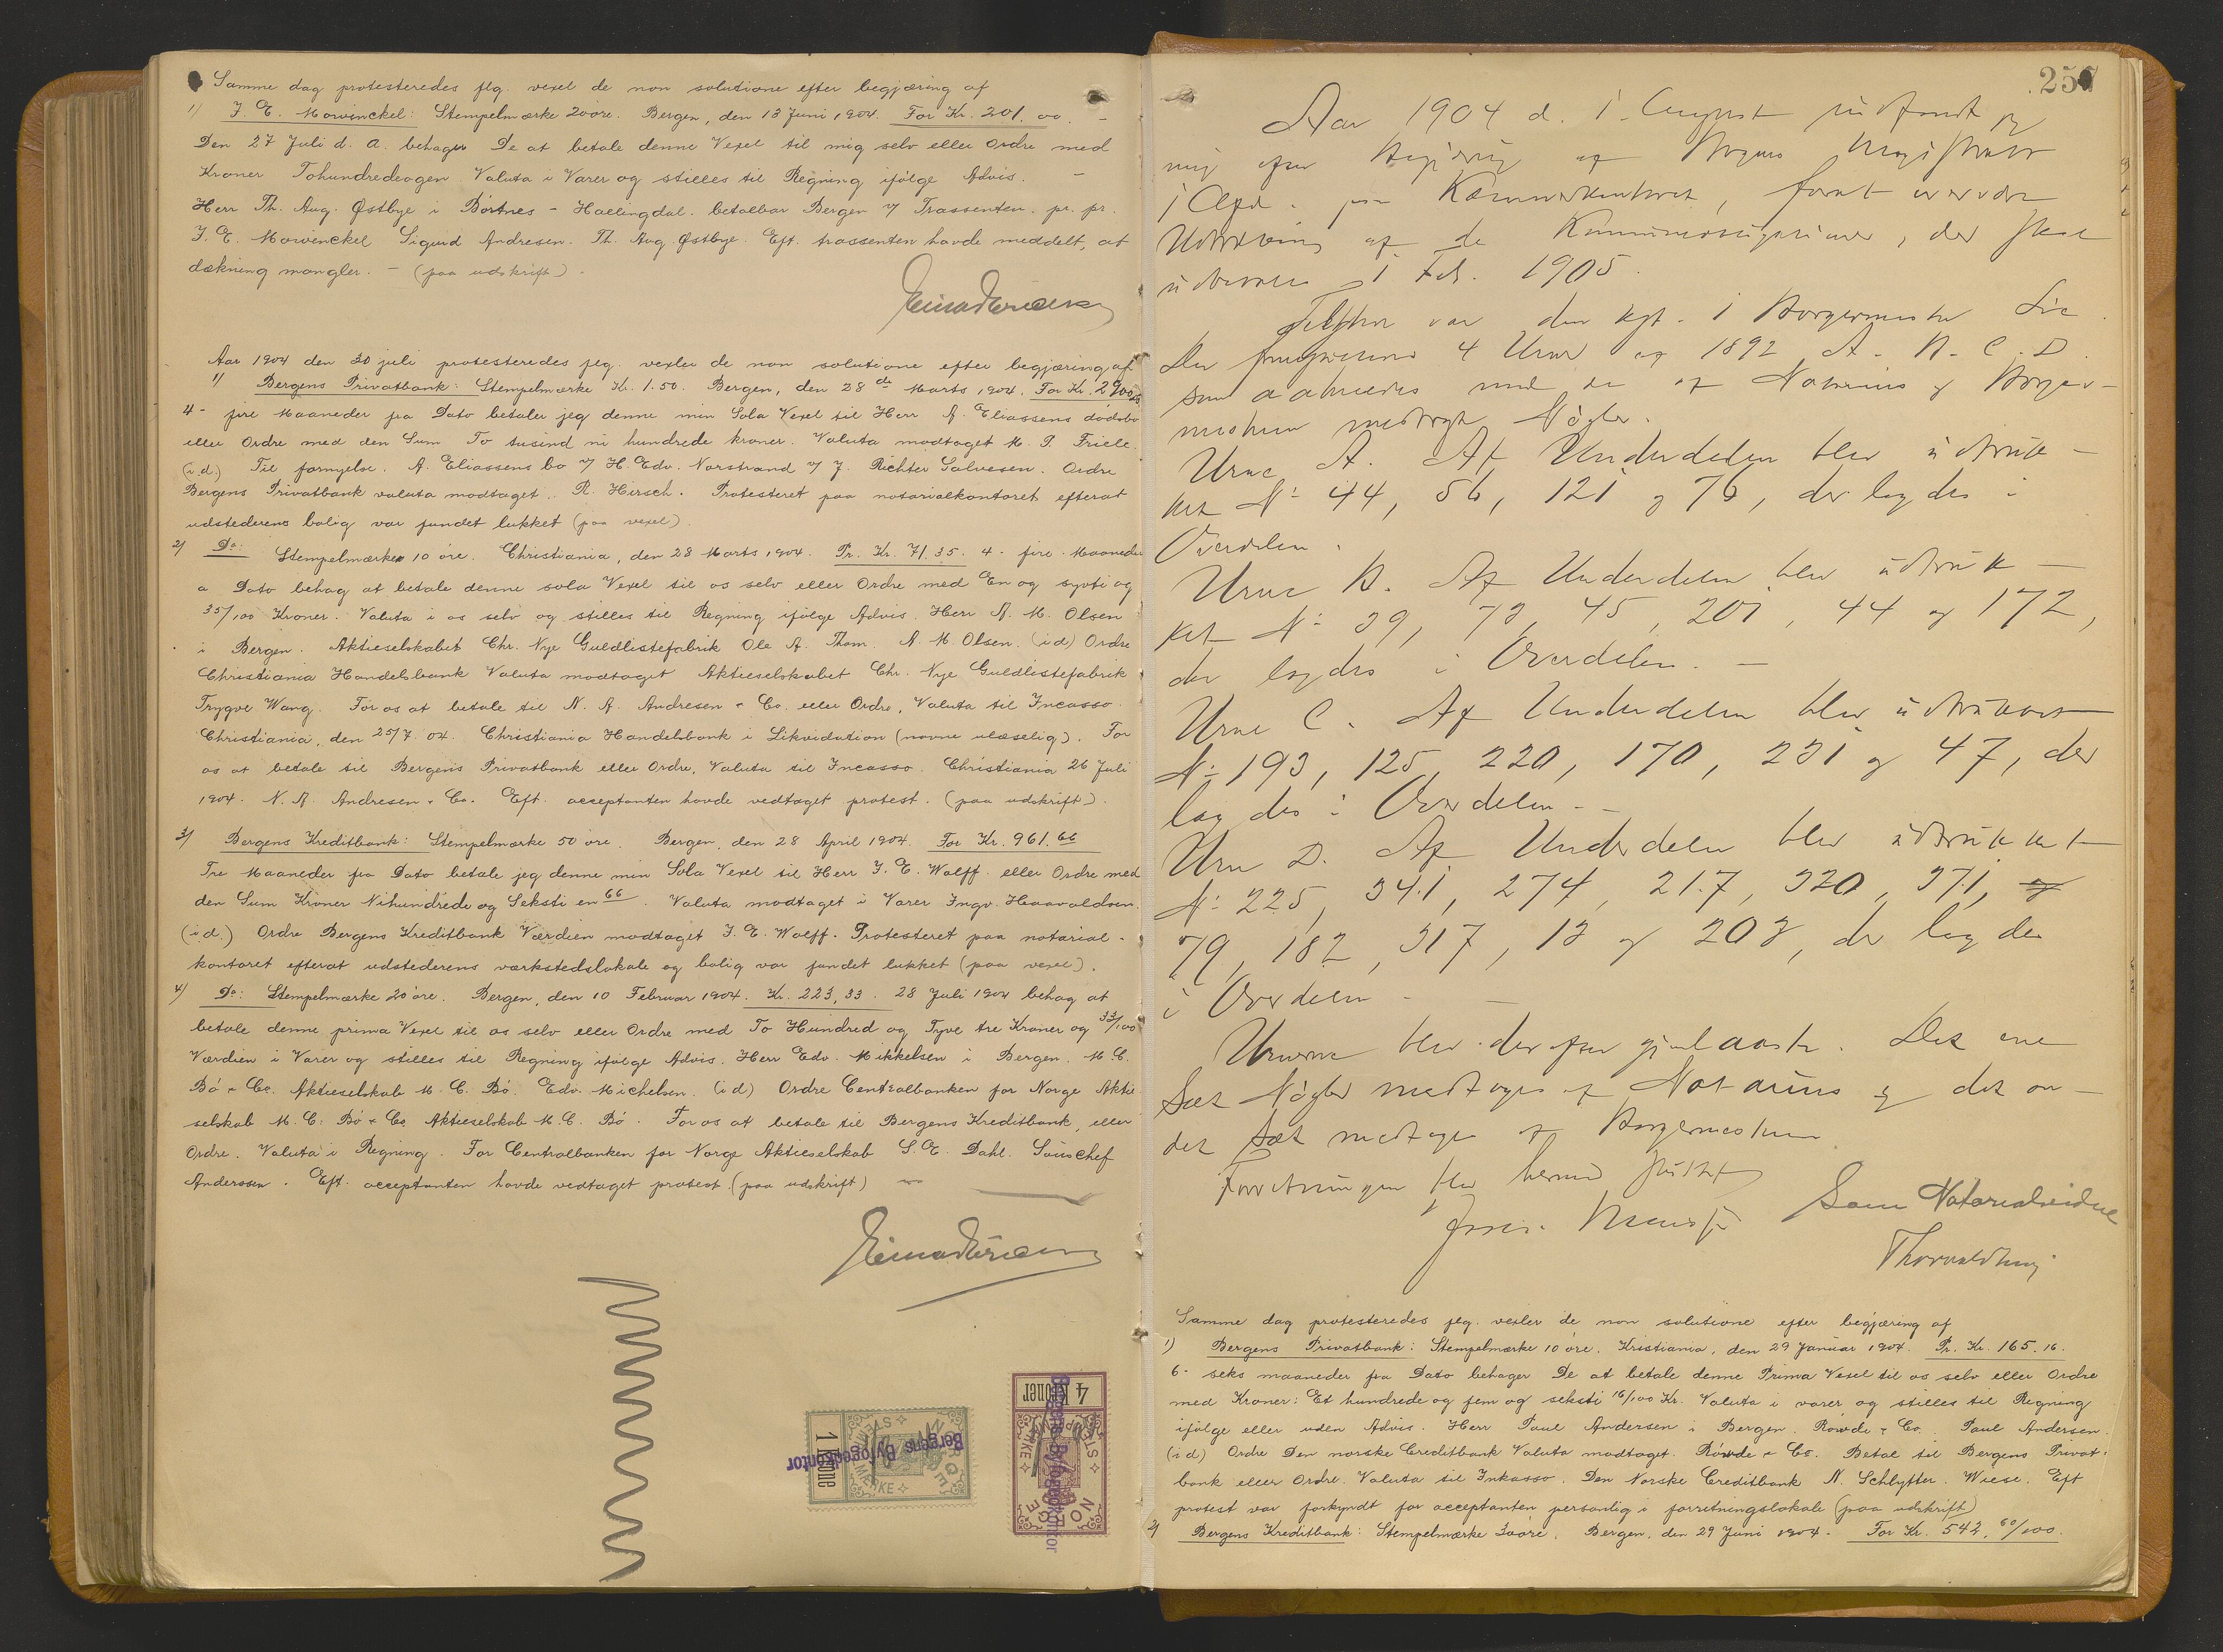 Samme dag protesteredes flg. vexel de non solutione efter begjæring af
1) J. E. Mowinckel: Stempelmærke 20 øre. Bergen, den 13 Juni 1904. For Kr. 201.00. -
Den 27 Juli d. a. behager De at betale denne Vexel til mig selv eller Ordre med
Kroner Tohundredeogen Valuta i Varer og stilles til Regning ifölge Advis. -
Herr Th. Aug. Østbye i Börtnes - Hallingdal. betalbar Bergen % Trassenten. pr. pr.
J. E. Mowinckel Sigurd Andresen. Th. Aug. Østbye. Eft. trassenten havde meddelt, at
dækning mangler. - (paa udskrift).
Aar 1904 den 30 juli protesteredes flg. vexler de non solutione efter begjæring af
1) Bergens Privatbank: Stempelmærke Kr. 1.50. Bergen, den 28de Marts 1904. For Kr. 2900
4- fire Maaneder fra Dato betaler jeg denne min Sola Vexel til Herr A. Eliassens dødsbo
eller Ordre med den Sum To tusind ni hundrede kroner. Valuta modtaget M. P. Friele.
(i.d.) Til fornyelse. A. Eliassens bo % H. Edv. Norstrand % J. Richter Salvesen. Ordre
Bergens Privatbank valuta modtaget. R. Hirsch. Protesteret paa notarialkontoret efterat
udstederens bolig var fundet lukket (paa vexel).
2) Do: Stempelmærke 10 øre. Christiania, den 28 Marts 1904. Pr. Kr. 71.35. 4 - fire - Maaneder
a Dato behag at betale denne sola Vexel til os selv eller Ordre med En og sytti og
35/100 Kroner. Valuta i os selv og stilles til Regning ifölge Advis. Herr A. M. Olsen
i Bergen. Aktieselskabet Chr. Nye Guldlistefabrik Ole A. Thom. A. M. Olsen. (i d) Ordre
Christiania Handelsbank Valuta modtaget Aktieselskabet Chr. Nye Guldlistefabrik
Trygve Wang. For os at betale til N. A. Andresen & Co. eller Ordre, Valuta til Incasso.
Christiania, den 25/7. 04. Christiania Handelsbank i Likvidation (navne ulæselig). For
os at betale til Bergens Privatbank eller Ordre, Valuta til Incasso. Christiania 26 Juli
1904. N. A. Andresen & Co. Eft. acceptanten havde vedtaget protest. (paa udskrift).
3) Bergens Kreditbank: Stempelmærke 50 øre. Bergen, den 28 April 1904. For Kr. 961.66
Tre Maaneder fra Dato betale jeg denne min Sola Vexel til Herr J. E. Wolff eller Ordre med
den Sum Kroner Nihundrede og Seksti en 66. Valuta modtaget i Varer Ingv. Haavaldsen.
(i d.) Ordre Bergens Kreditbank Værdien modtaget J. E. Wolff. Protesteret paa notarial-
kontoret efterat udstederens værkstedslokale og bolig var fundet lukket (paa vexel).
4) Do: Stempelmærke 20 øre. Bergen, den 10 Februar 1904. Kr. 223,33. 28 Juli 1904 behag at
betale denne prima Vexel til os selv eller Ordre med To Hundred og Tyve tre Kroner og 33/100
Værdien i Varer og stilles til Regning ifølge Advis. Herr Edv. Mikkelsen i Bergen. M. C.
Bö & Co. Aktieselskab M. C. Bö. Edv. Michelsen. (i d) Ordre Centralbanken for Norge Aktie
selskab M. C. Bö & Co Aktieselskab M. C. Bö. For os at betale til Bergens Kreditbank, eller
Ordre. Valuta i Regning. For Centralbanken for Norge Aktieselskab S. E. Dahl. Souschef
Anderssen. Eft. acceptanten havde vedtaget protest. (paa udskrift)
4 kroner
STEMPELMÆRKE NORGE
Bergens Byfogedkontor
1 krone
STEMPELMÆRKE NORGE
Bergens Byfogedkontor
257
Aar 1904 d. 1. August indfandt jeg
mig efter Begjæring af Bergens Magistrats
1 Afd. paa Kæmnerkontoret, for at
Udtrækning af de der skal
1 Feb. 1905.
Tilstede var den kgt. 1 Borgermester
4 Urner af 1892 A. B. C. D.
som aabnedes med de af Notarius og Borger-
mesteren medbragte Nøgler.
Urne A. Af Underdelen blev udtruk-
ket No 44, 56, 121 og 76, der lagdes i
Overdelen.
Urne B. Af Underdelen blev udtruk-
ket No 39, 73, 45, 201, 44 og 172,
der lagdes i Overdelen. -
Urne C. Af Underdelen blev udtrukket
No 193, 125, 220, 170, 231 og 47, der
lagdes i Overdelen. -
Urne D. Af Underdelen blev udtrukket
No 225, 341, 274, 217, 320, 371,
79, 182, 317, 13 og 203, der lagdes
i Overdelen -
Urnerne blev derefter gjenlaaste. Det ene
Sæt Nøgler medtoges af Notarius og det an-
det Sæt medtoges af Borgermesteren
Forretningen blev hermed sluttet
Som Notarialvidne
Samme dag protesteredes flg. vexler de non solutione efter begjæring af
1) Bergens Privatbank: Stempelmærke 10 øre. Kristiania, den 29 Januar 1904. Pr. Kr. 165.16.
6- seks maaneder fra Dato behager De at betale denne Prima Vexel til os selv eller Ordre
med Kroner: Et hundrede og fem og seksti 16/100 Kr. Valuta i varer og stilles til Regning
ifølge eller uden Advis. Herr Paul Andersen i Bergen. Röwde & Co. Paul Andersen.
(i d) Ordre Den norske Creditbank Valuta modtaget. Röwde & Co. Betal til Bergens Privat-
bank eller Ordre. Valuta til Inkasso. Den Norske Creditbank N. Schlytter. Wiese. Eft
protest var forkyndt for acceptanten personlig i forretningslokale (paa udskrift)
2) Bergens Kreditbank: Stempelmærke 30 øre. Bergen, den 29 Juni 1904. For Kr. 542,60/100.